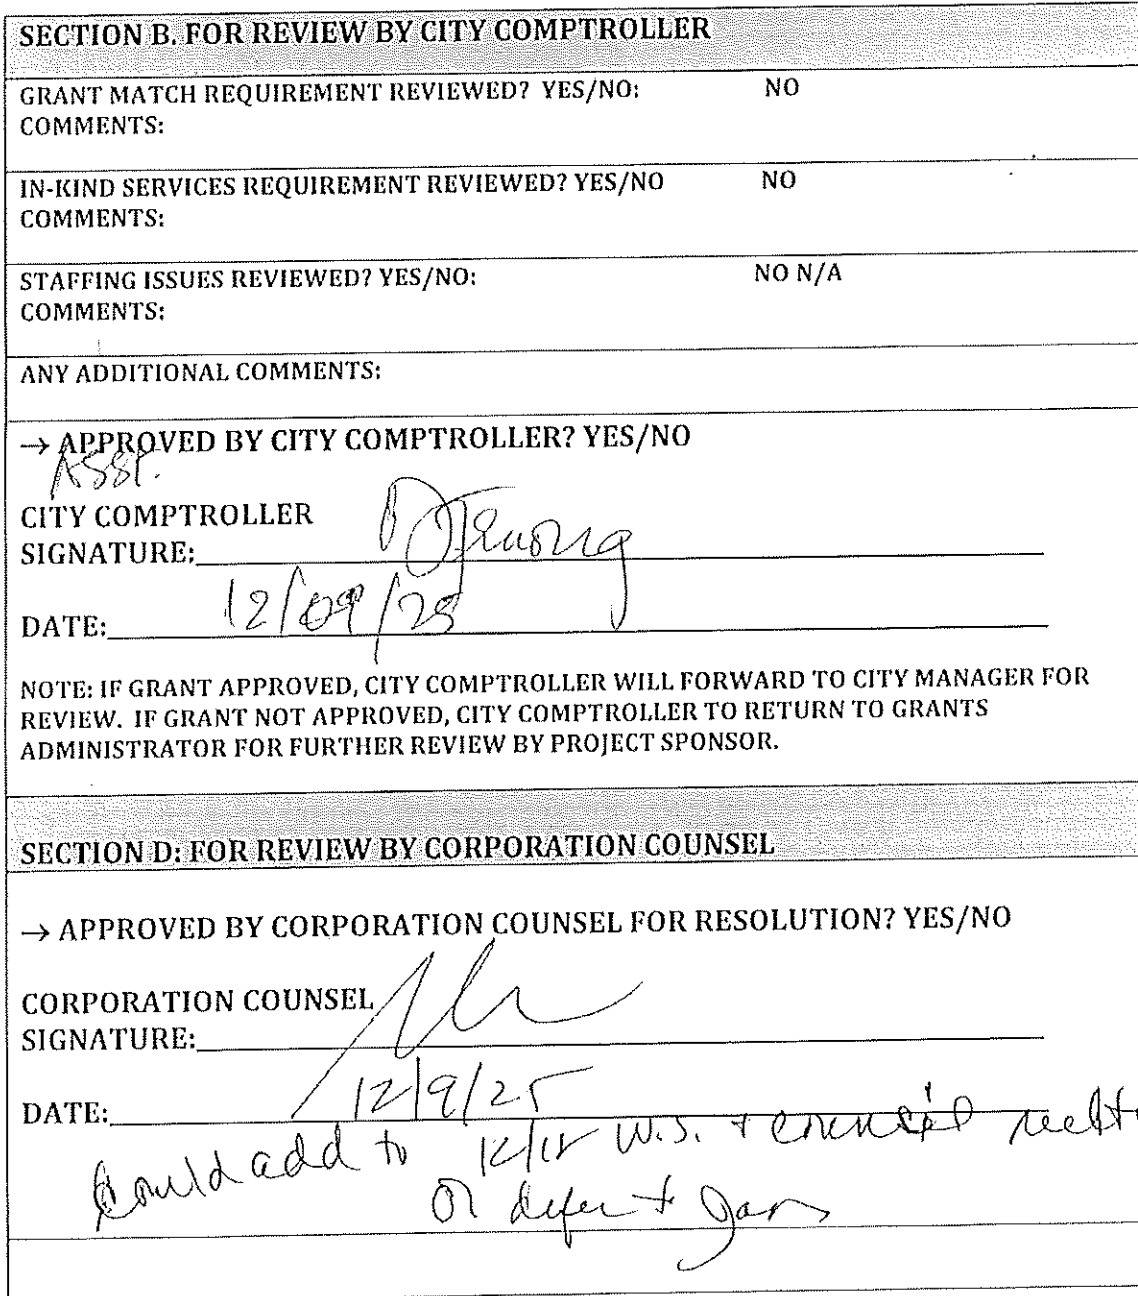 SECTION B. FOR REVIEW BY CITY COMPTROLLER
GRANT MATCH REQUIREMENT REVIEWED? YES/NO: NO
COMMENTS:
IN-KIND SERVICES REQUIREMENT REVIEWED? YES/NO NO
COMMENTS:
STAFFING ISSUES REVIEWED? YES/NO: NO N/A
COMMENTS:
ANY ADDITIONAL COMMENTS:
→ APPROVED BY CITY COMPTROLLER? YES/NO
CITY COMPTROLLER
SIGNATURE:
DATE: 12/09/25
NOTE: IF GRANT APPROVED, CITY COMPTROLLER WILL FORWARD TO CITY MANAGER FOR
REVIEW. IF GRANT NOT APPROVED, CITY COMPTROLLER TO RETURN TO GRANTS
ADMINISTRATOR FOR FURTHER REVIEW BY PROJECT SPONSOR.
SECTION D: FOR REVIEW BY CORPORATION COUNSEL
→ APPROVED BY CORPORATION COUNSEL FOR RESOLUTION? YES/NO
CORPORATION COUNSEL
SIGNATURE:
DATE: 12/9/25
Could add to W.S. + council
or defer Jan